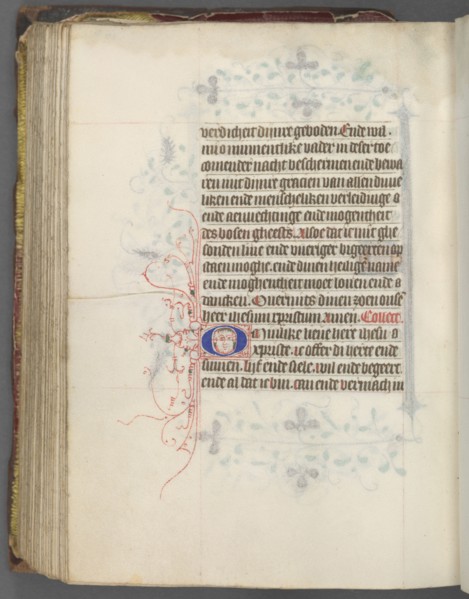 verdicheit dijnre geboden. Ende wil.
mi o minnentlike vader in deser toe
comender nacht beschermen ende bewa
ren mit dijnre gracien van allen duve
liken ende menscheliken verleidinge
ende aenvechtinge ende mogentheit
des bosen gheests. Alsoe dat ic mit ghe
sonden live ende vueriger begeerten op
staen moghe. ende dinen heiligen name
ende moghentheit moet loven ende
dancken. Overmits dinen zoen onsse
heer ihesum xpristum. Amen. 
O minlike lieve here ihesu
xpriste. ic offer di herte ende
sinnen. lijf ende siele. wil ende begeerte
ende al dat ic bin. can ende vermach in